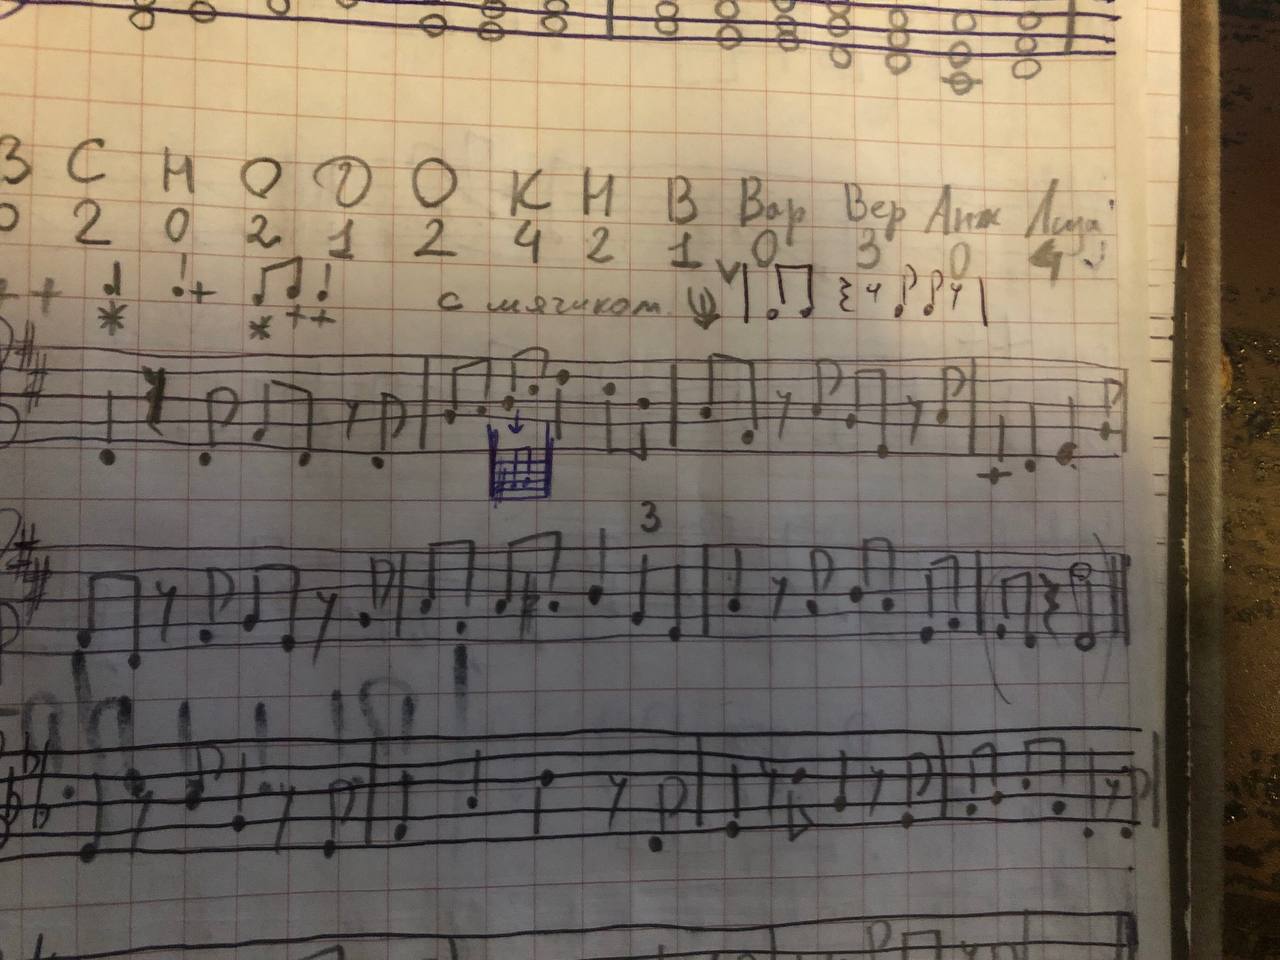 З С Н О О О К Н В Вар Вер Анж Лиза
0 2 0 2 1 2 4 2 1 0 3 0 4
с мячиком
3